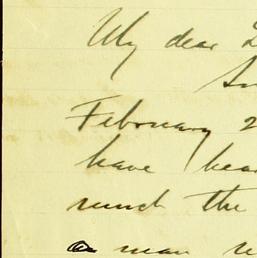 My dear
February 2
have hea
much the
a man